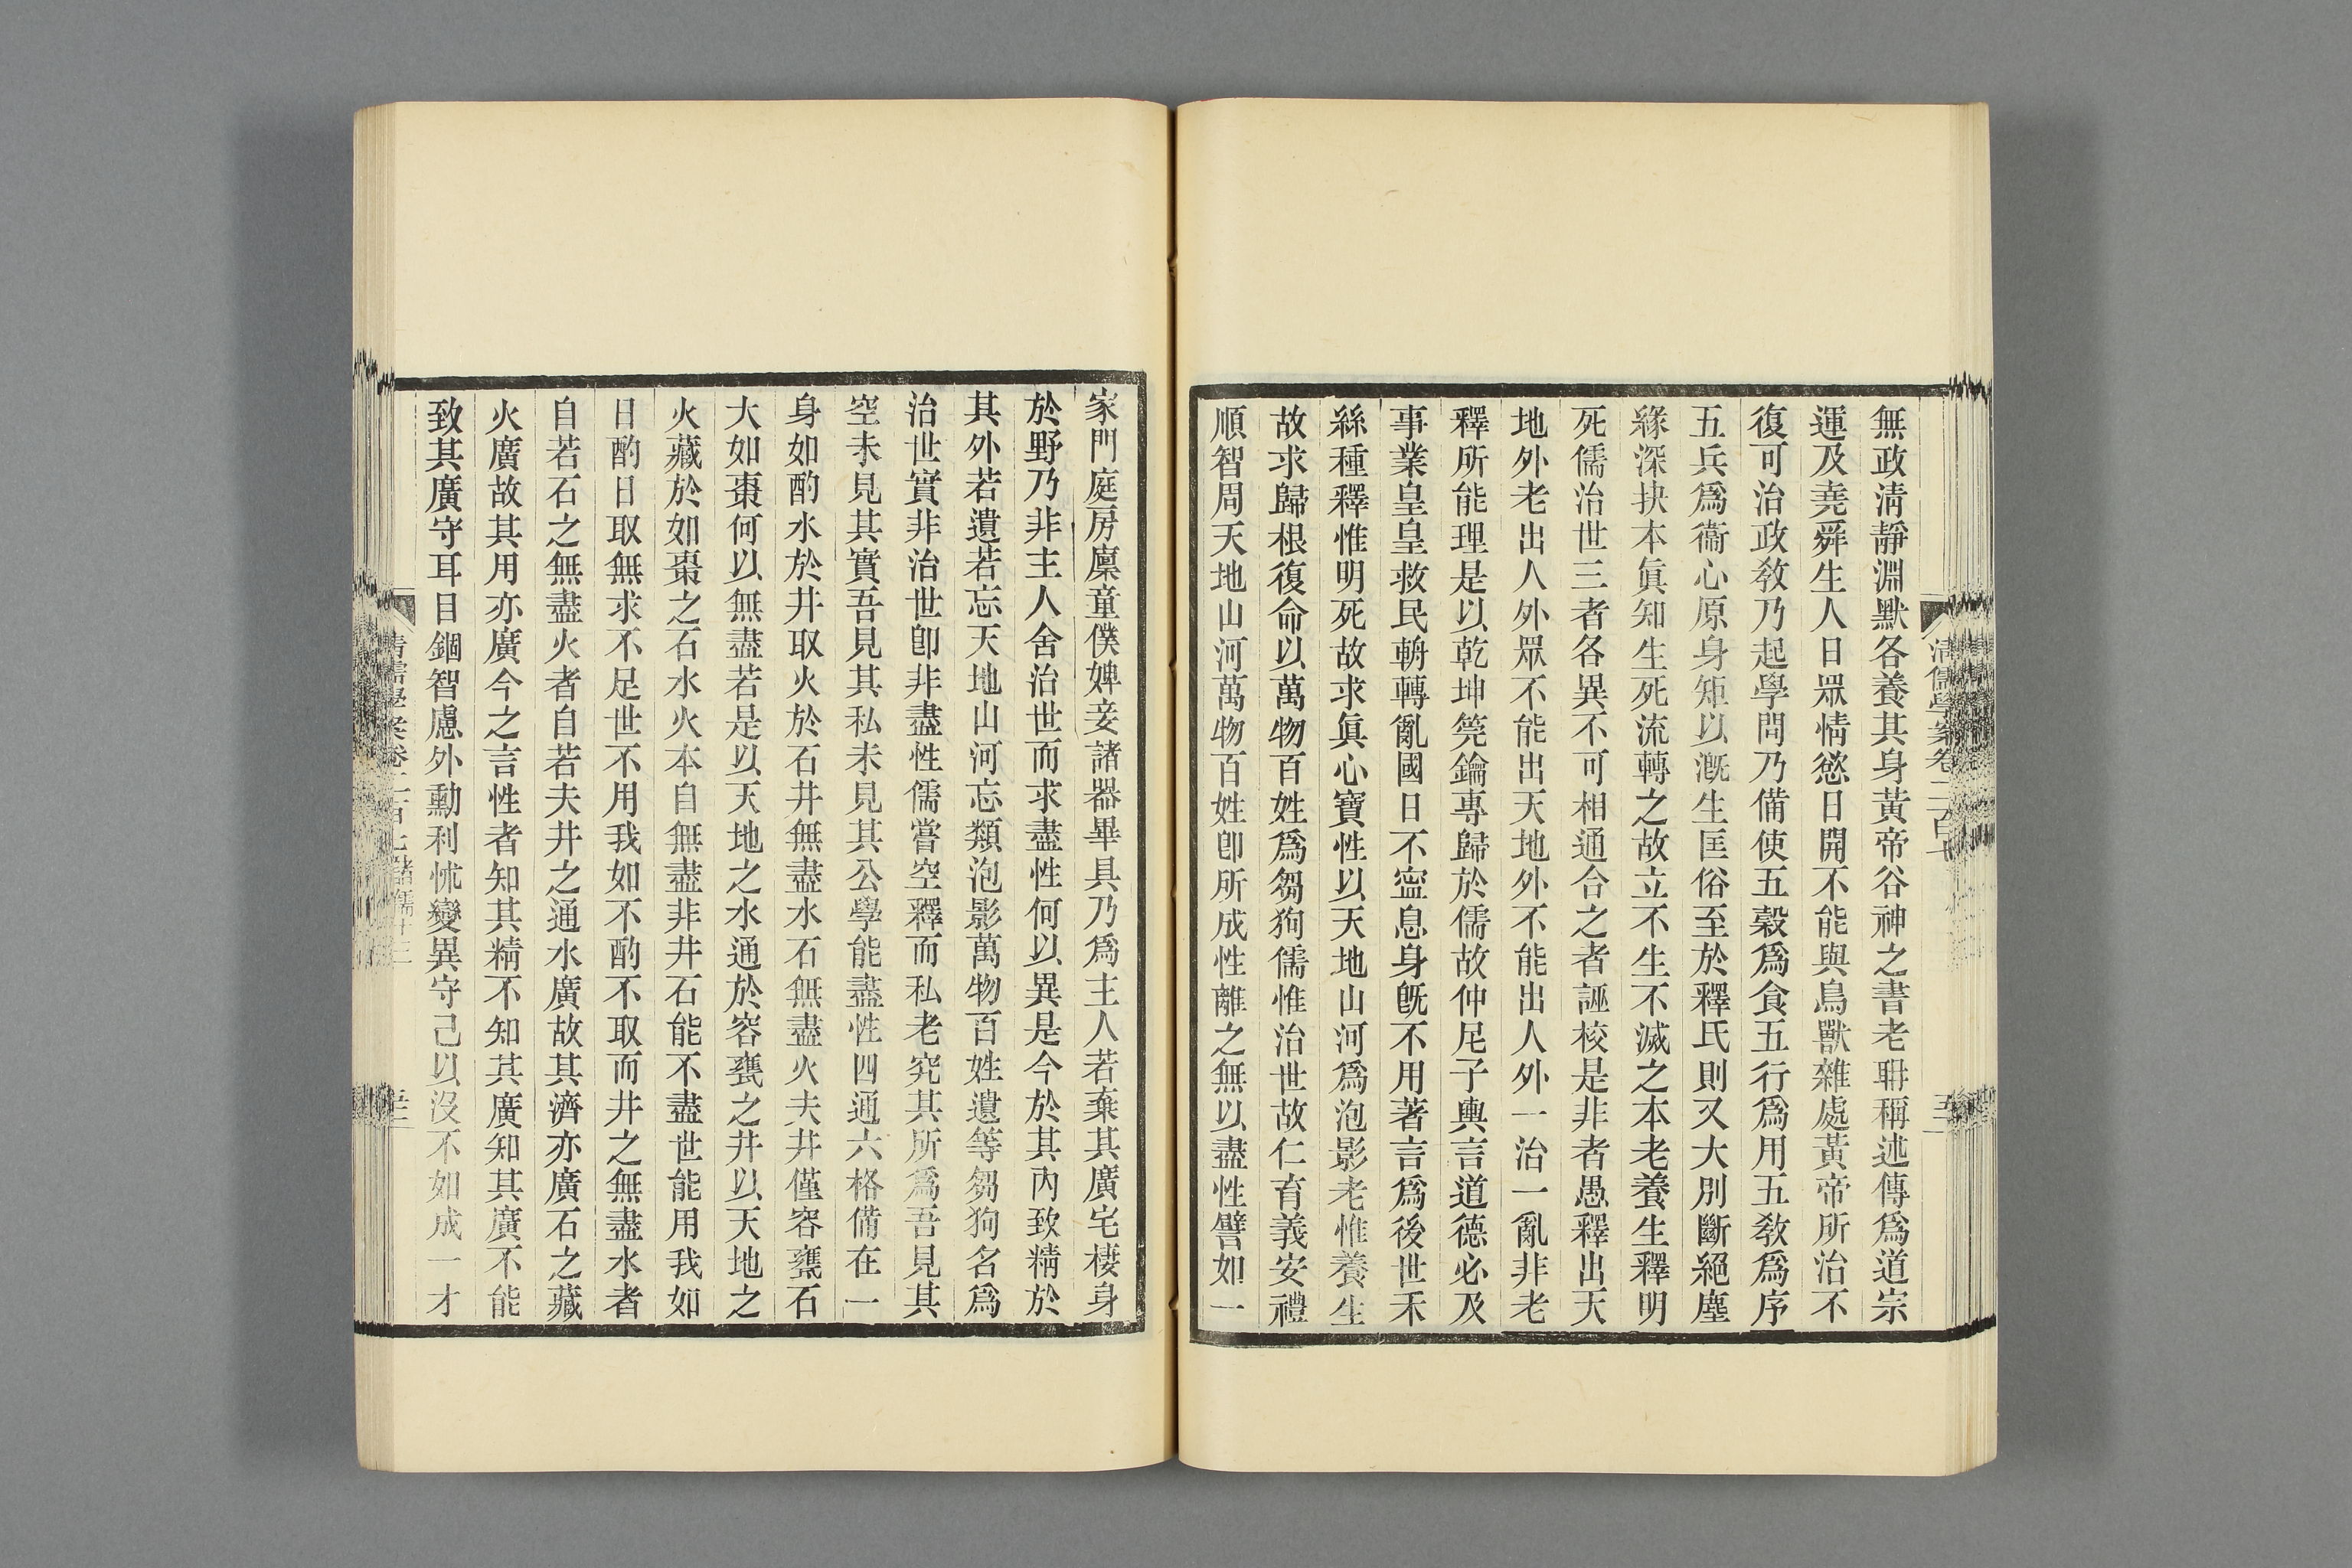 無政淸靜淵默各養其身黃帝谷神之書老聃稱述傳爲道宗
運及堯舜生人日眾情慾日開不能與鳥獸雜處黃帝所治不
復可治政敎乃起學問乃備使五穀爲食五行爲用五敎爲序
五兵爲衞心原身矩以漑生匡俗至於釋氏則又大別斷絕塵
緣深抉本眞知生死流轉之故立不生不滅之本老養生釋明
死儒治世三者各異不可相通合之者誣校是非者愚釋出天
地外老出人外眾不能出天地外不能出人外一治一亂非老
釋所能理是以乾坤筦鑰專歸於儒故仲尼子輿言道德必及
事業皇皇救民輈轉亂國日不寍息身旣不用著言爲後世禾
絲種釋惟明死故求眞心寶性以天地山河爲泡影老惟養生
故求歸根復命以萬物百姓爲芻狗儒惟治世故仁育義安禮
順智周天地山河萬物百姓卽所成性離之無以盡性譬如一
家門庭房廩童僕婢妾諸器畢具乃爲主人若棄其廣宅棲身
於野乃非主人舍治世而求盡性何以異是今於其內致精於
其外若遺若忘天地山河忘類泡影萬物百姓遺等芻狗名爲
治世實非治世卽非盡性儒嘗空釋而私老究其所爲吾見其
空未見其實吾見其私未見其公學能盡性四通六格備在一
身如酌水於井取火於石井無盡水石無盡火夫井僅容甕石
大如棗何以無盡若是以天地之水通於容甕之井以天地之
火藏於如棗之石水火本自無盡非井石能不盡世能用我如
日酌日取無求不足世不用我如不酌不取而井之無盡水者
自若石之無盡火者自若夫井之通水廣故其濟亦廣石之藏
火廣故其用亦廣今之言性者知其精不知其廣知其廣不能
致其廣守耳目錮智慮外勳利怵變異守己以沒不如成一才